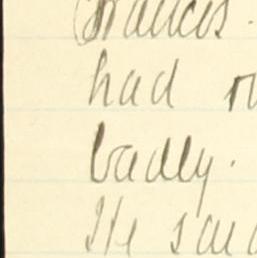 Francis.
had
badly.
He said